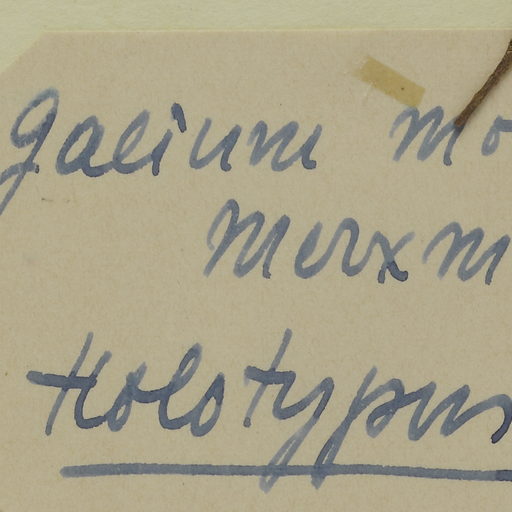 Galium mo
Merxm
Holotypus